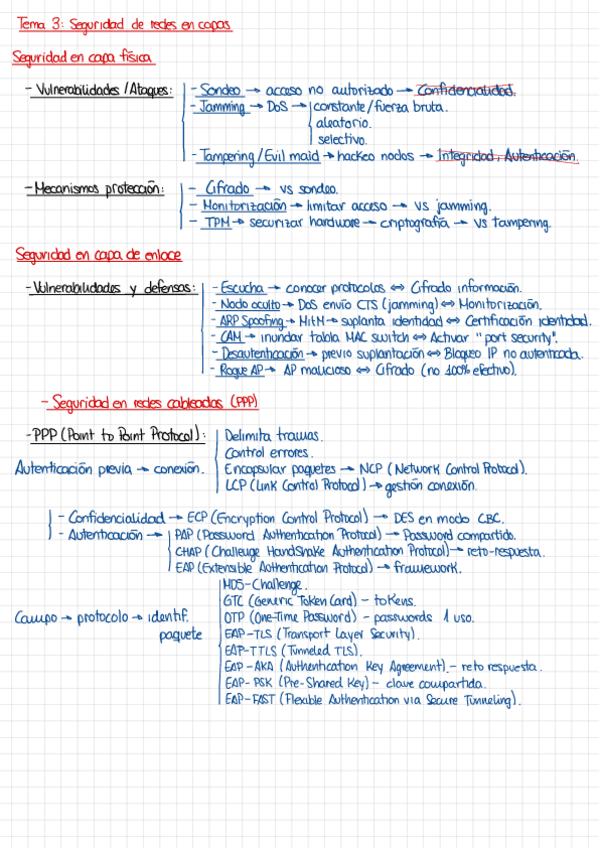 Tema 3: Seguridad de redes en capas
Seguridad en capa física
- Vulnerabilidades / Ataques: - Sondeo → acceso no autorizado → Confidencialidad.
- Jamming → DoS → constante/fuerza bruta.
aleatorio.
selectivo.
- Tampering / Evil maid → hackeo nodos → Integridad, Autenticación.
- Mecanismos protección: - Cifrado → vs sondeo.
- Monitorización → limitar acceso → vs jamming.
- TPM → securizar hardware → criptografía → vs tampering.
Seguridad en capa de enlace
- Vulnerabilidades y defensas: - Escucha → conocer protocolos ⇔ Cifrado información.
- Nodo oculto → DoS envío CTS (jamming) ⇔ Monitorización.
- ARP Spoofing → MitM → suplanta identidad ⇔ Certificación identidad.
- CAM → inundar tabla MAC switch ⇔ Activar "port security".
- Desautenticación → previo suplantación ⇔ Bloqueo IP no autenticada.
- Rogue AP → AP malicioso ⇔ Cifrado (no 100% efectivo).
- Seguridad en redes cableadas (PPP)
- PPP (Point to Point Protocol): Delimita tramas.
Control errores.
Autenticación previa → conexión. Encapsular paquetes → NCP (Network Control Protocol).
LCP (Link Control Protocol) → gestión conexión.
- Confidencialidad → ECP (Encryption Control Protocol) → DES en modo CBC.
- Autenticación → PAP (Password Authentication Protocol) → Password compartido.
CHAP (Challenge HandShake Authentication Protocol) → reto-respuesta.
EAP (Extensible Authentication Protocol) → framework.
MD5-Challenge.
GTC (Generic Token Card) - tokens.
Campo → protocolo → identif. OTP (One-Time Password) - passwords 1 uso.
paquete EAP-TLS (Transport Layer Security).
EAP-TTLS (Tunneled TLS).
EAP-AKA (Authentication Key Agreement) - reto respuesta.
EAP-PSK (Pre-Shared Key) - clave compartida.
EAP-FAST (Flexible Authentication via Secure Tunneling).